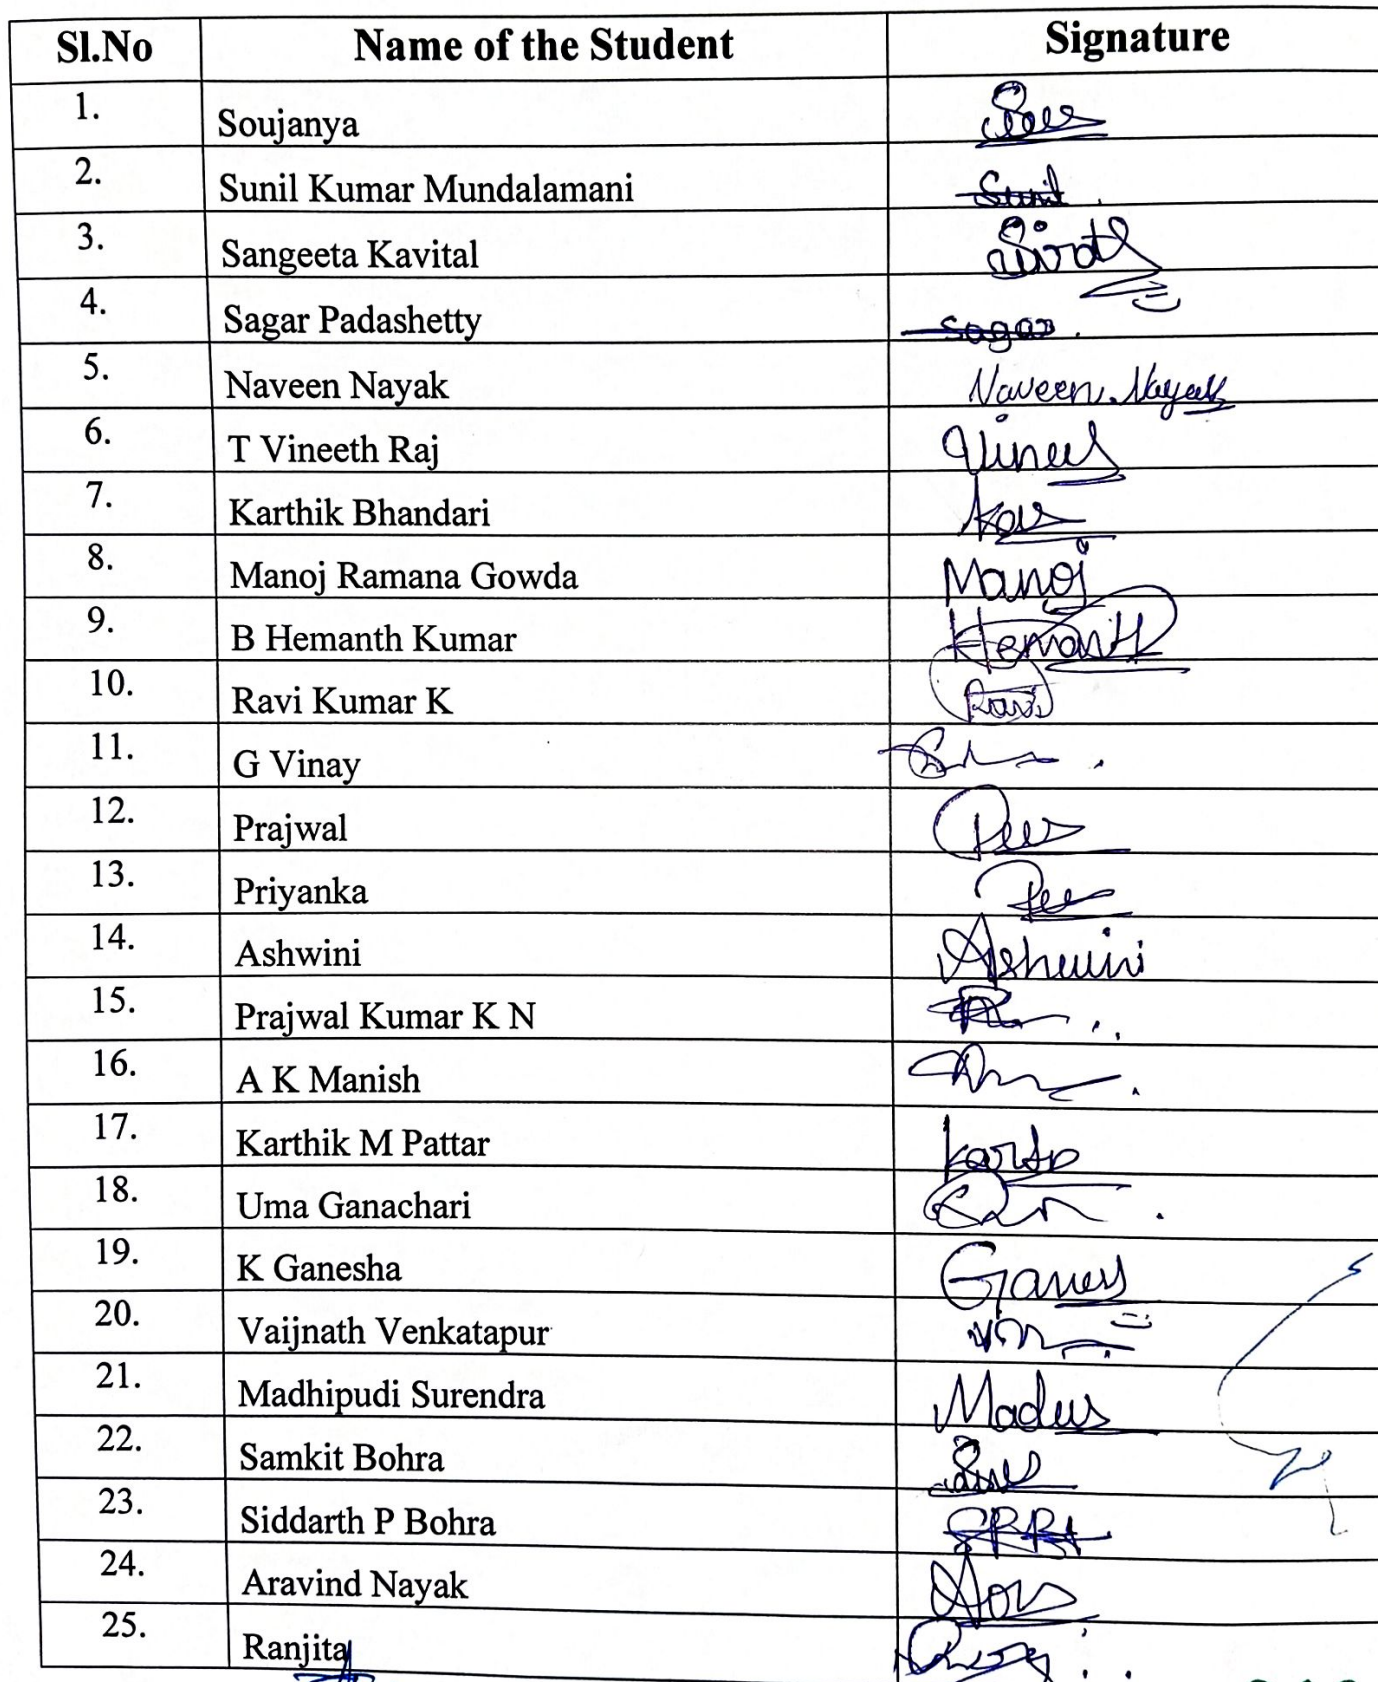 Sl.No Name of the Student Signature
1. Soujanya
2. Sunil Kumar Mundalamani Sunil
3. Sangeeta Kavital
4. Sagar Padashetty sagar
5. Naveen Nayak Naveen Nayak
6. T Vineeth Raj
7. Karthik Bhandari
8. Manoj Ramana Gowda Manoj
9. B Hemanth Kumar Hemanth
10. Ravi Kumar K Ravi
11. G Vinay
12. Prajwal
13. Priyanka
14. Ashwini Ashwini
15. Prajwal Kumar K N
16. A K Manish
17. Karthik M Pattar
18. Uma Ganachari
19. K Ganesha
20. Vaijnath Venkatapur
21. Madhipudi Surendra
22. Samkit Bohra
23. Siddarth P Bohra
24. Aravind Nayak
25. Ranjita